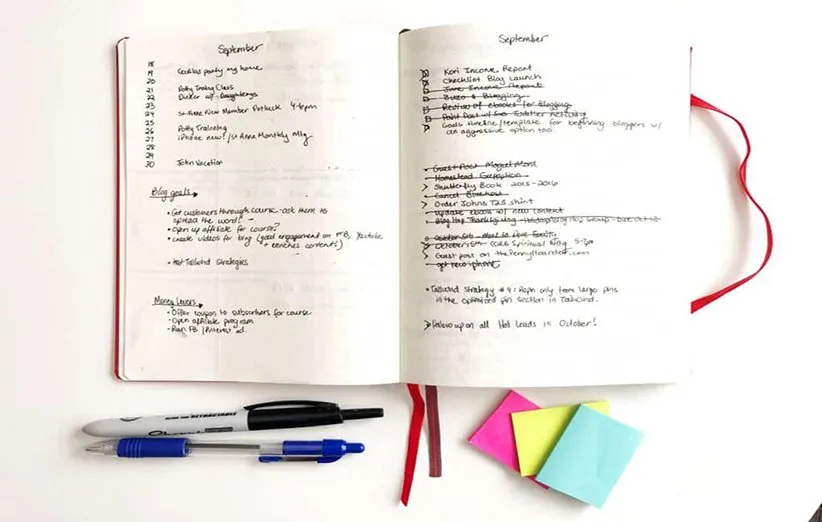 September
18
19 Cecilias party my home
20
21 Potty Training Class
22 Dinner w/
23
24 St Anne New Member Potluck 4-6pm
25
26 Potty Training
27 iPhone new! / St Anne Monthly Mtg
28
29
30 John Vacation
Blog goals
• Get customers through course - ask them to
spread the word!
• Open up affiliate for course?
• Create videos for blog (good engagement on FB, Youtube
+ enriches contents)
• Tailwind Strategies
Money Levers
• Offer coupon to subscribers for course
• Open affiliate program
• Run FB / Pinterest ad.
September
Kori Income Report
Checklist Blog Launch
June Income Report
Buzo & Blogging
Revival of ebooks for Blogging
Paint Post w/ Together
Goals timeline/template for beginning bloggers w/
an aggressive option too.
Guest Post
Homestead
> Shutterfly Book 2015-2016
Cancel
> Order Johns T25 shirt
update ebook w/ new content
Blog Hop Thanksgiving - Blog Hop Group - Due Oct 13
October 5th -
October 5th - Spiritual 5-7p
> Guest post on
get new iphone
• Tailwind Strategy #4: Repin only from large pins
in the optimized pin section in Tailwind.
> Follow up on all Hot Leads in October!